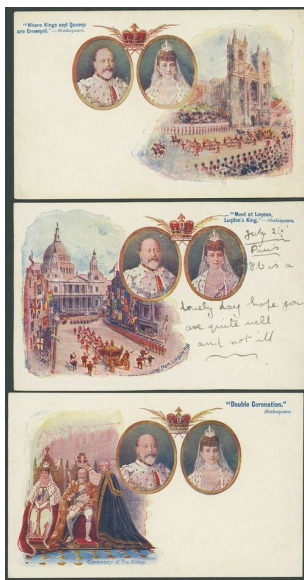 "Where Kings and Queens
are Crowned."—Shakespeare.
"Meet at London,
London's King."—Shakespeare.
July 26
It is a
lovely day hope you
are quite well
and not ill
"Double Coronation."
Shakespeare.
Ceremony at the Abbey.